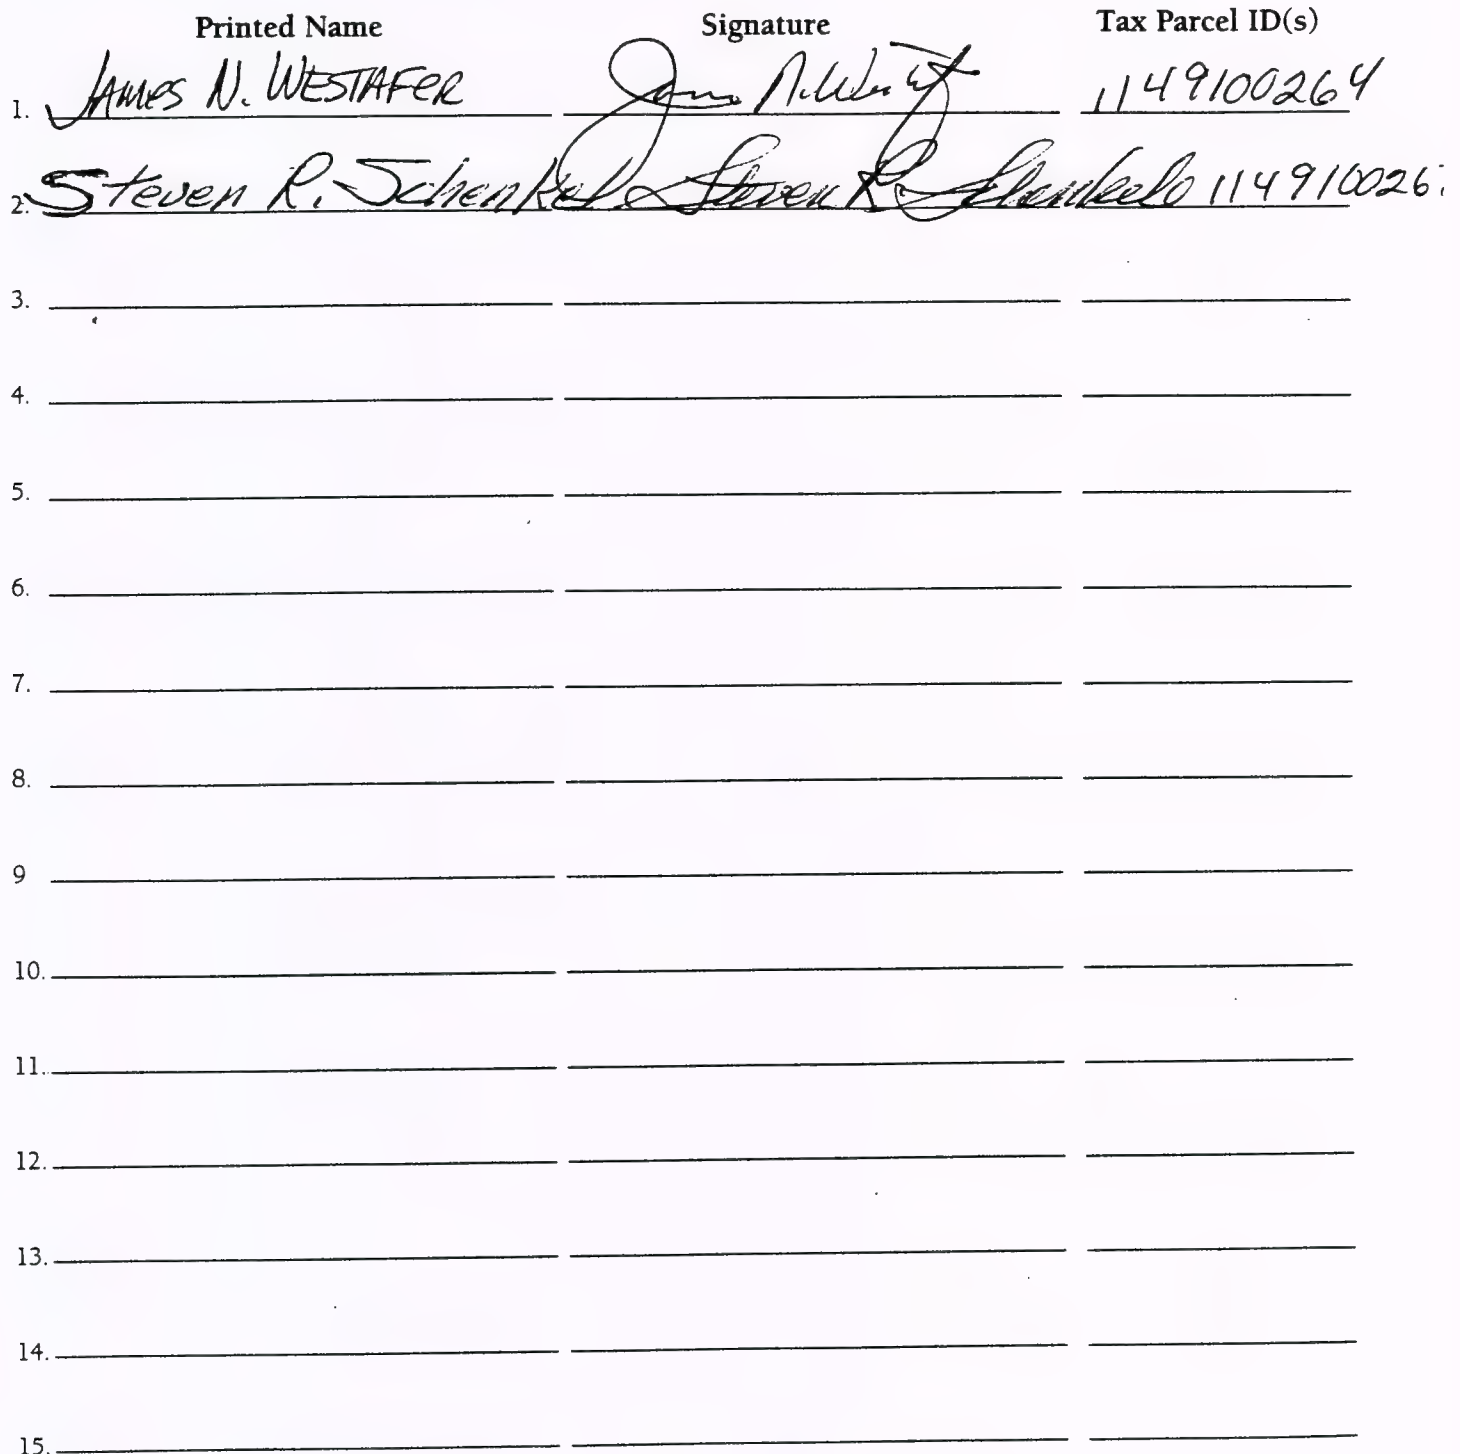 Printed Name Signature Tax Parcel ID(s)
1. JAMES N. WESTAFER James N. West 1149100264
2. Steven R. Schenkel Steven R. Schenkel 114910026
3.
4.
5.
6.
7.
8.
9
10.
11.
12.
13.
14.
15.